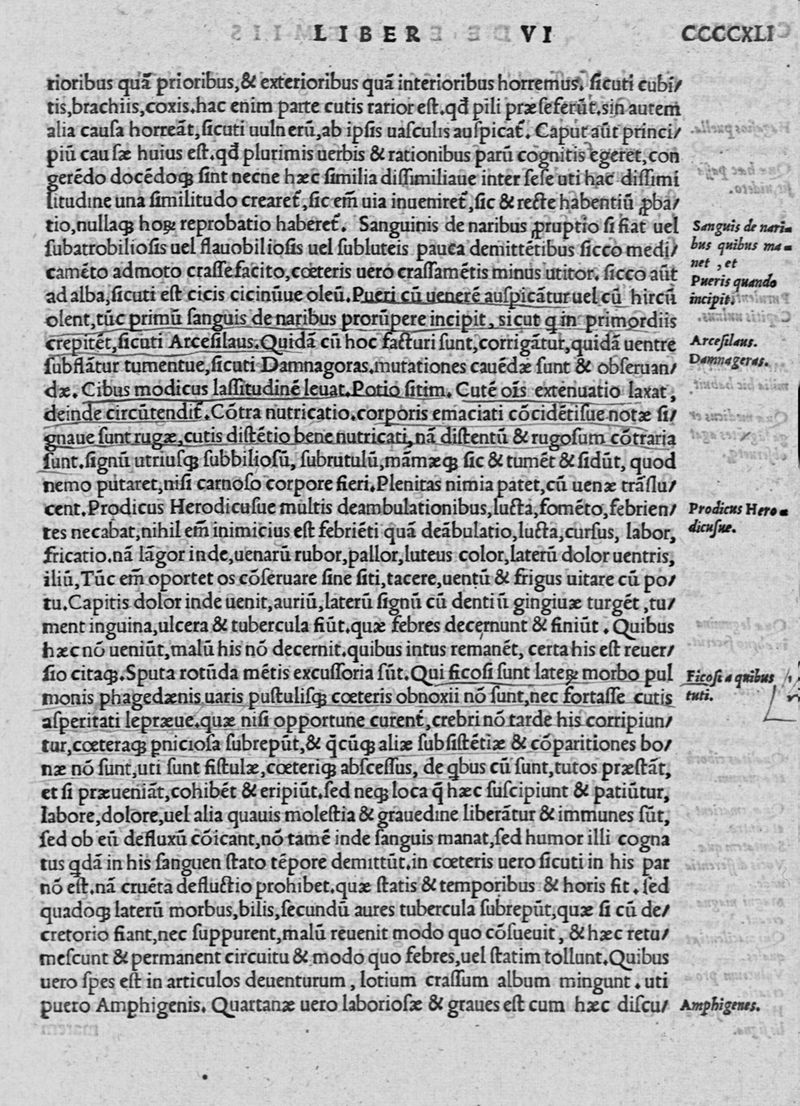 LIBER VI CCCCXLI
rioribus quã prioribus,& exterioribus quã interioribus horremus. ſicuti cubi/
tis,brachiis,coxis.hac enim parte cutis rarior eſt.qđ pili præſeferũt.sin autem
alia cauſa horreãt,ſicuti uulnerũ,ab ipſis uaſculis auſpicat᷑. Caput aũt princi/
piũ cauſæ huius eſt.qđ plurimis uerbis & rationibus parũ cognitis egeret,con
gerẽdo docẽdoqꝫ ſint necne hæc ſimilia diſſimiliaue inter ſeſe uti hac diſſimi
litudine una ſimilitudo crearet᷑,ſic em̃ uia inueniret᷑,ſic & recte habentiũ ꝓba/
tio,nullaqꝫ hoꝝ reprobatio haberet᷑. Sanguinis de naribus ꝓruptio ſi fiat uel
ſubatrobilioſis uel flauobilioſis uel ſubluteis pauca demittẽtibus ſicco medi/
camẽto admoto craſſefacito,cœteris uero craſſamẽtis minus utitor. ſicco aũt
ad alba,ſicuti eſt cicis cicinũue oleũ.Pueri cũ uenerẽ auſpicãtur uel cũ hircũ
olent,tũc primũ ſanguis de naribus prorũpere incipit, sicut q in primordiis
crepitẽt,ſicuti Arceſilaus.Quidã cũ hoc facturi ſunt,corrigãtur,quidã uentre
ſubflãtur tumentue,ſicuti Damnagoras.mutationes cauẽdæ ſunt & obſeruan/
dæ. Cibus modicus laſſitudinẽ leuat.Potio ſitim. Cutẽ oĩs extenuatio laxat,
deinde circũtendit᷑.Cõtra nutricatio.corporis emaciati cõcidẽtiſue notæ ſi/
gnaue ſunt rugæ,cutis diſtẽtio bene nutricati,nã diſtentũ & rugoſum cõtraria
ſunt.ſignũ utriuſqꝫ ſubbilioſũ, ſubrutulũ,mãmæqꝫ ſic & tumẽt & ſidũt, quod
nemo putaret,niſi carnoſo corpore fieri.Plenitas nimia patet,cũ uenæ trãſlu/
cent.Prodicus Herodicuſue multis deambulationibus,lucta,fomẽto,febrien/
tes necabat,nihil em̃ inimicius eſt febriẽti quã deãbulatio,lucta,curſus, labor,
fricatio.nã lãgor inde,uenarũ rubor,pallor,luteus color,laterũ dolor uentris,
iliũ,Tũc em̃ oportet os cõſeruare ſine ſiti,tacere,uentũ & frigus uitare cũ po/
tu.Capitis dolor inde uenit,auriũ,laterũ ſignũ cũ dentiũ gingiuæ turgẽt ,tu/
ment inguina,ulcera & tubercula fiũt.quæ febres decernunt & finiũt . Quibus
hæc nõ ueniũt,malũ his nõ decernit.quibus intus remanẽt, certa his eſt reuer/
ſio citaqꝫ.Sputa rotũda mẽtis excuſſoria ſũt.Qui ficoſi ſunt lateꝝ morbo pul
monis phagedænis uaris puſtuliſqꝫ cœteris obnoxii nõ ſunt,nec fortaſſe cutis
aſperitati lepræue.quæ niſi opportune curent᷑,crebri nõ tarde his corripiun/
tur,cœteraqꝫ pnicioſa ſubrepũt,& q̃cũqꝫ aliæ ſubſiſtẽtiæ & cõparitiones bo/
næ nõ ſunt,uti ſunt fiſtulæ,cœteriqꝫ abſceſſus, de qbus cũ ſunt,tutos præſtãt,
et ſi præueniãt,cohibẽt & eripiũt.ſed neqꝫ loca q̃ hæc ſuſcipiunt & patiũtur,
labore,dolore,uel alia quauis moleſtia & grauedine liberãtur & immunes ſũt,
ſed ob eũ defluxũ cõicant,nõ tamẽ inde ſanguis manat,ſed humor illi cogna
tus qdã in his ſanguen ſtato tẽpore demittũt.in cœteris uero ſicuti in his par
nõ eſt.nã cruẽta defluctio prohibet.quæ ſtatis & temporibus & horis fit . ſed
quadoqꝫ laterũ morbus,bilis,ſecundũ aures tubercula ſubrepũt,quæ ſi cũ de/
cretorio fiant,nec ſuppurent,malũ reuenit modo quo cõſueuit , & hæc retu/
meſcunt & permanent circuitu & modo quo febres,uel ſtatim tollunt.Quibus
uero ſpes eſt in articulos deuenturum , lotium craſſum album mingunt . uti
puero Amphigenis. Quartanæ uero laborioſæ & graues eſt cum hæc diſcu/
Sanguis de nari=
bus quibus ma=
net , et
Pueris quando
incipit.
Arceſilaus.
Damnageras.
Prodicus Hero=
dicuſue.
Ficoſi a quibus
tuti.
Amphigenes.